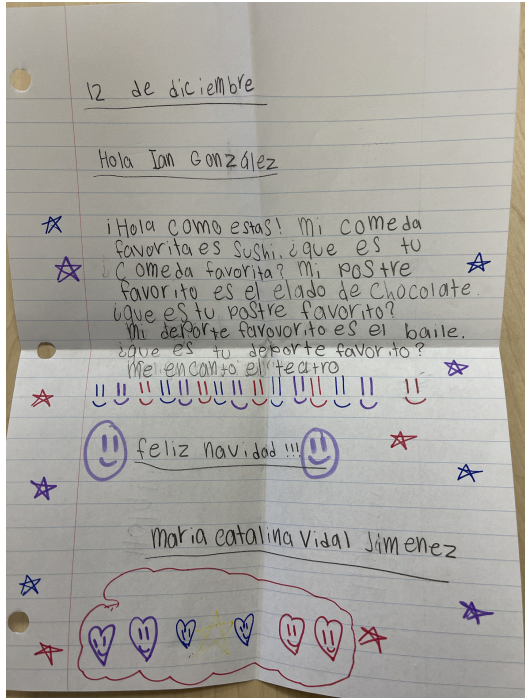 12 de diciembre
Hola Ian González
¡Hola como estas! mi comeda
favorita es Sushi. ¿que es tu
comeda favorita? mi postre
favorito es el elado de chocolate.
¿que es tu postre favorito?
mi deporte favovorito es el baile.
¿que es tu deporte favorito?
me encantó el teatro
feliz navidad !!!
maria catalina Vidal Jimenez